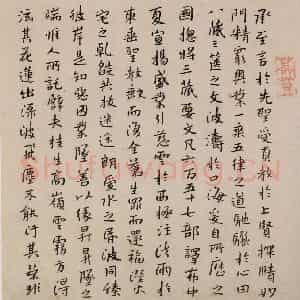 承至言於先聖受真教於上賢探賾妙
門精窮奧業一乘五律之道馳驟於心田
八藏三篋之文波濤於海爰自所歷之
國總將三藏要文凡六百五十七部譯布中
夏宣揚盛業引慈雲於西極注法雨於
東垂聖教缺而復全蒼生罪而還福濕火
宅之乾焰共拔迷途朗愛水之昏波同臻
彼岸是知惡因業墜善以緣昇昇墜之
端惟人所託譬夫桂生高嶺雲露方得
泫其花蓮出淥波飛塵不能污其葉非
Shufawang.CN